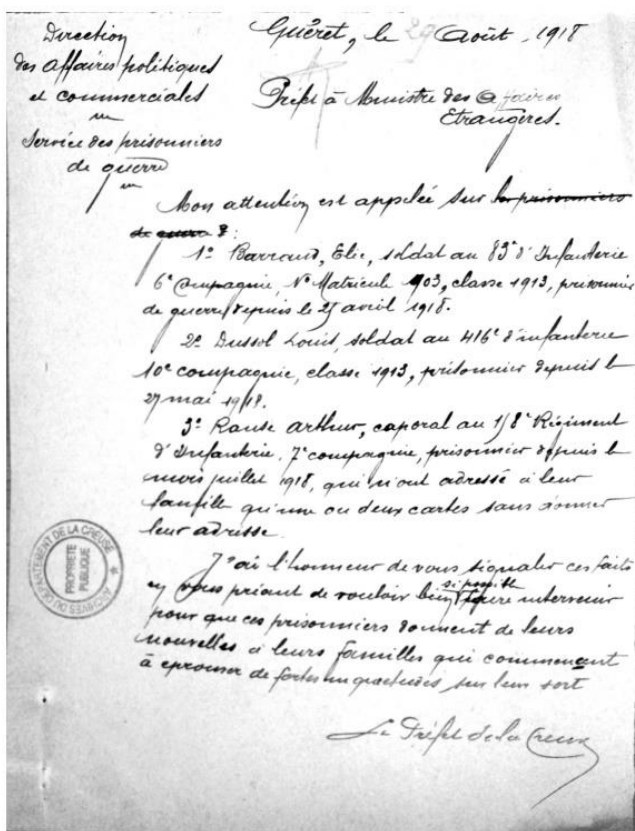 Direction
des affaires politiques
et commerciales
Service des prisonniers
de guerre
Guéret, le 29 Août 1918
Préfet à Ministre des Affaires
Etrangères.
Mon attention est appelée sur les prisonniers
de guerre :
1º Barraud, Elie, soldat au 83e d'Infanterie
6e Compagnie, Nº Matricule 903, classe 1913, prisonnier
de guerre depuis le 25 avril 1918.
2º Dussol Louis, soldat au 416e d'infanterie
10e compagnie, classe 1913, prisonnier depuis le
27 mai 1918.
3º Ranse Arthur, caporal au 158e Régiment
d'Infanterie, 7e compagnie, prisonnier depuis le
mois juillet 1918, qui n'ont adressé à leur
famille qu'une ou deux cartes sans donner
leur adresse.
J'ai l'honneur de vous signaler ces faits
en vous priant de vouloir bien si possible faire intervenir
pour que ces prisonniers donnent de leurs
nouvelles à leurs familles qui commencent
à éprouver de fortes inquiétudes sur leur sort
Le Préfet de la Creuse
ARCHIVES DU DÉPARTEMENT DE LA CREUSE
PROPRIÉTÉ
PUBLIQUE